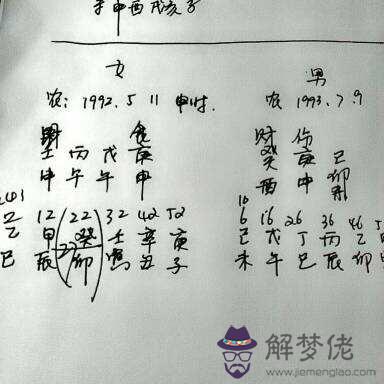 辛申酉戌亥子
女 男
农: 1992.5 11 申时. 农 1993.7.9
财 食 财 伤
壬 丙 戊 庚 癸 庚 己
申 午 午 申 酉 申 卯
12 22 32 42 52 6 16 26 36 46
乙 甲 癸 壬 辛 庚 己 戊 丁 丙 乙
巳 辰 卯 丑 子 未 午 巳 辰 卯
解梦佬
www.jiemenglao.com